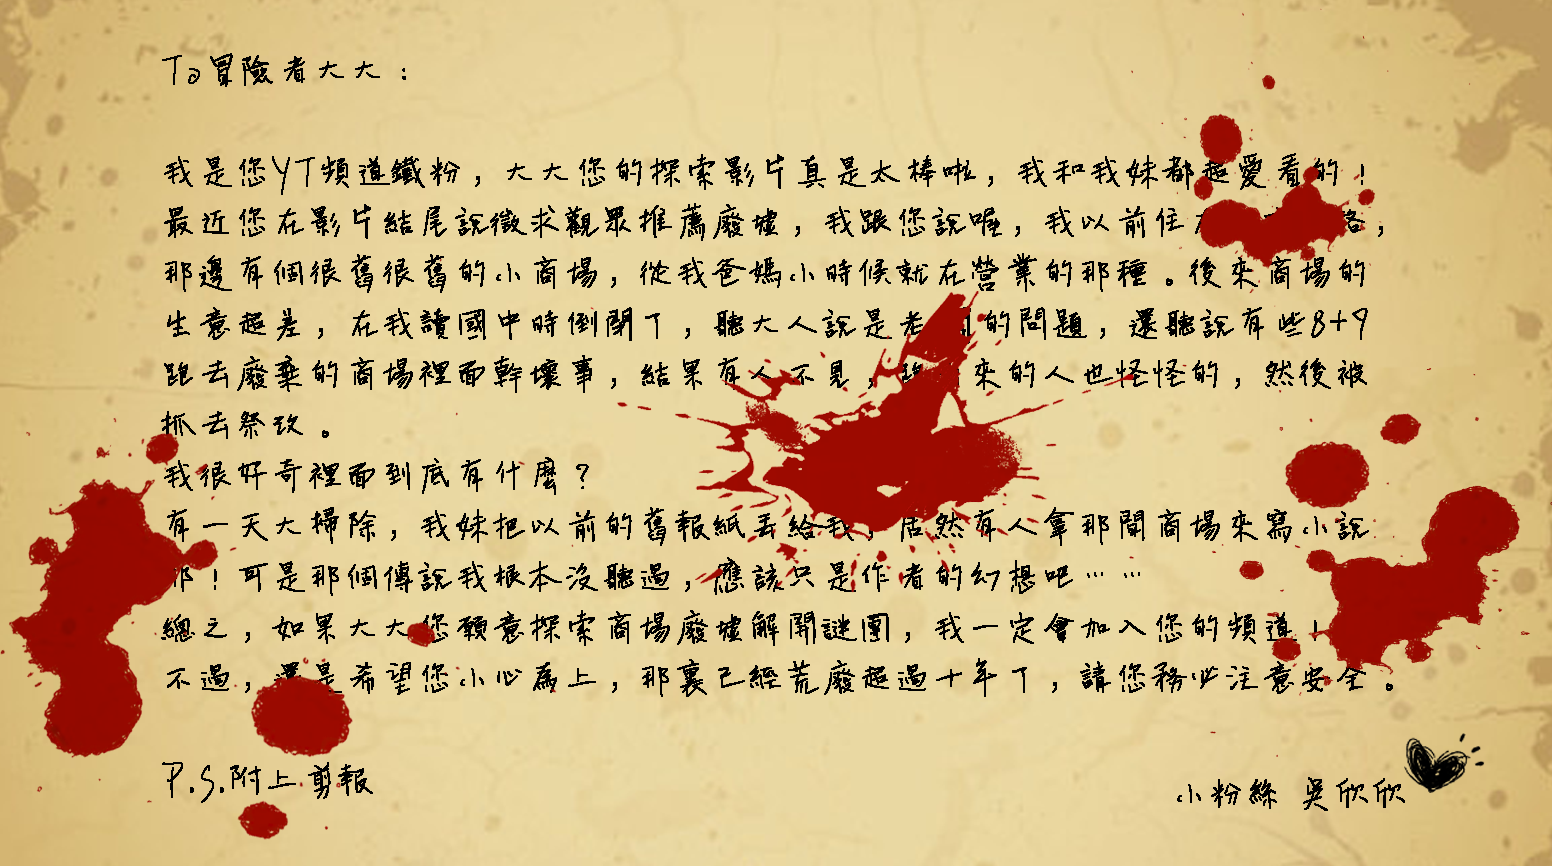 To冒險者大大：
我是您YT頻道鐵粉，大大您的探索影片真是太棒啦，我和我妹都超愛看的！
最近您在影片結尾說徵求觀眾推薦廢墟，我跟您說喔，我以前住 路，
那邊有個很舊很舊的小商場，從我爸媽小時候就在營業的那種。後來商場的
生意超差，在我讀國中時倒閉了，聽大人說是老 的問題，還聽說有些8+9
跑去廢棄的商場裡面幹壞事，結果有人不見， 來的人也怪怪的，然後被
抓去祭改。
我很好奇裡面到底有什麼？
有一天大掃除，我妹把以前的舊報紙丟給我，居然有人拿那間商場來寫小說
耶！可是那個傳說我根本沒聽過，應該只是作者的幻想吧……
總之，如果大大您願意探索商場廢墟解開謎團，我一定會加入您的頻道！
不過，還是希望您小心為上，那裏已經荒廢超過十年了，請您務必注意安全。
P.S.附上剪報
小粉絲 吳欣欣